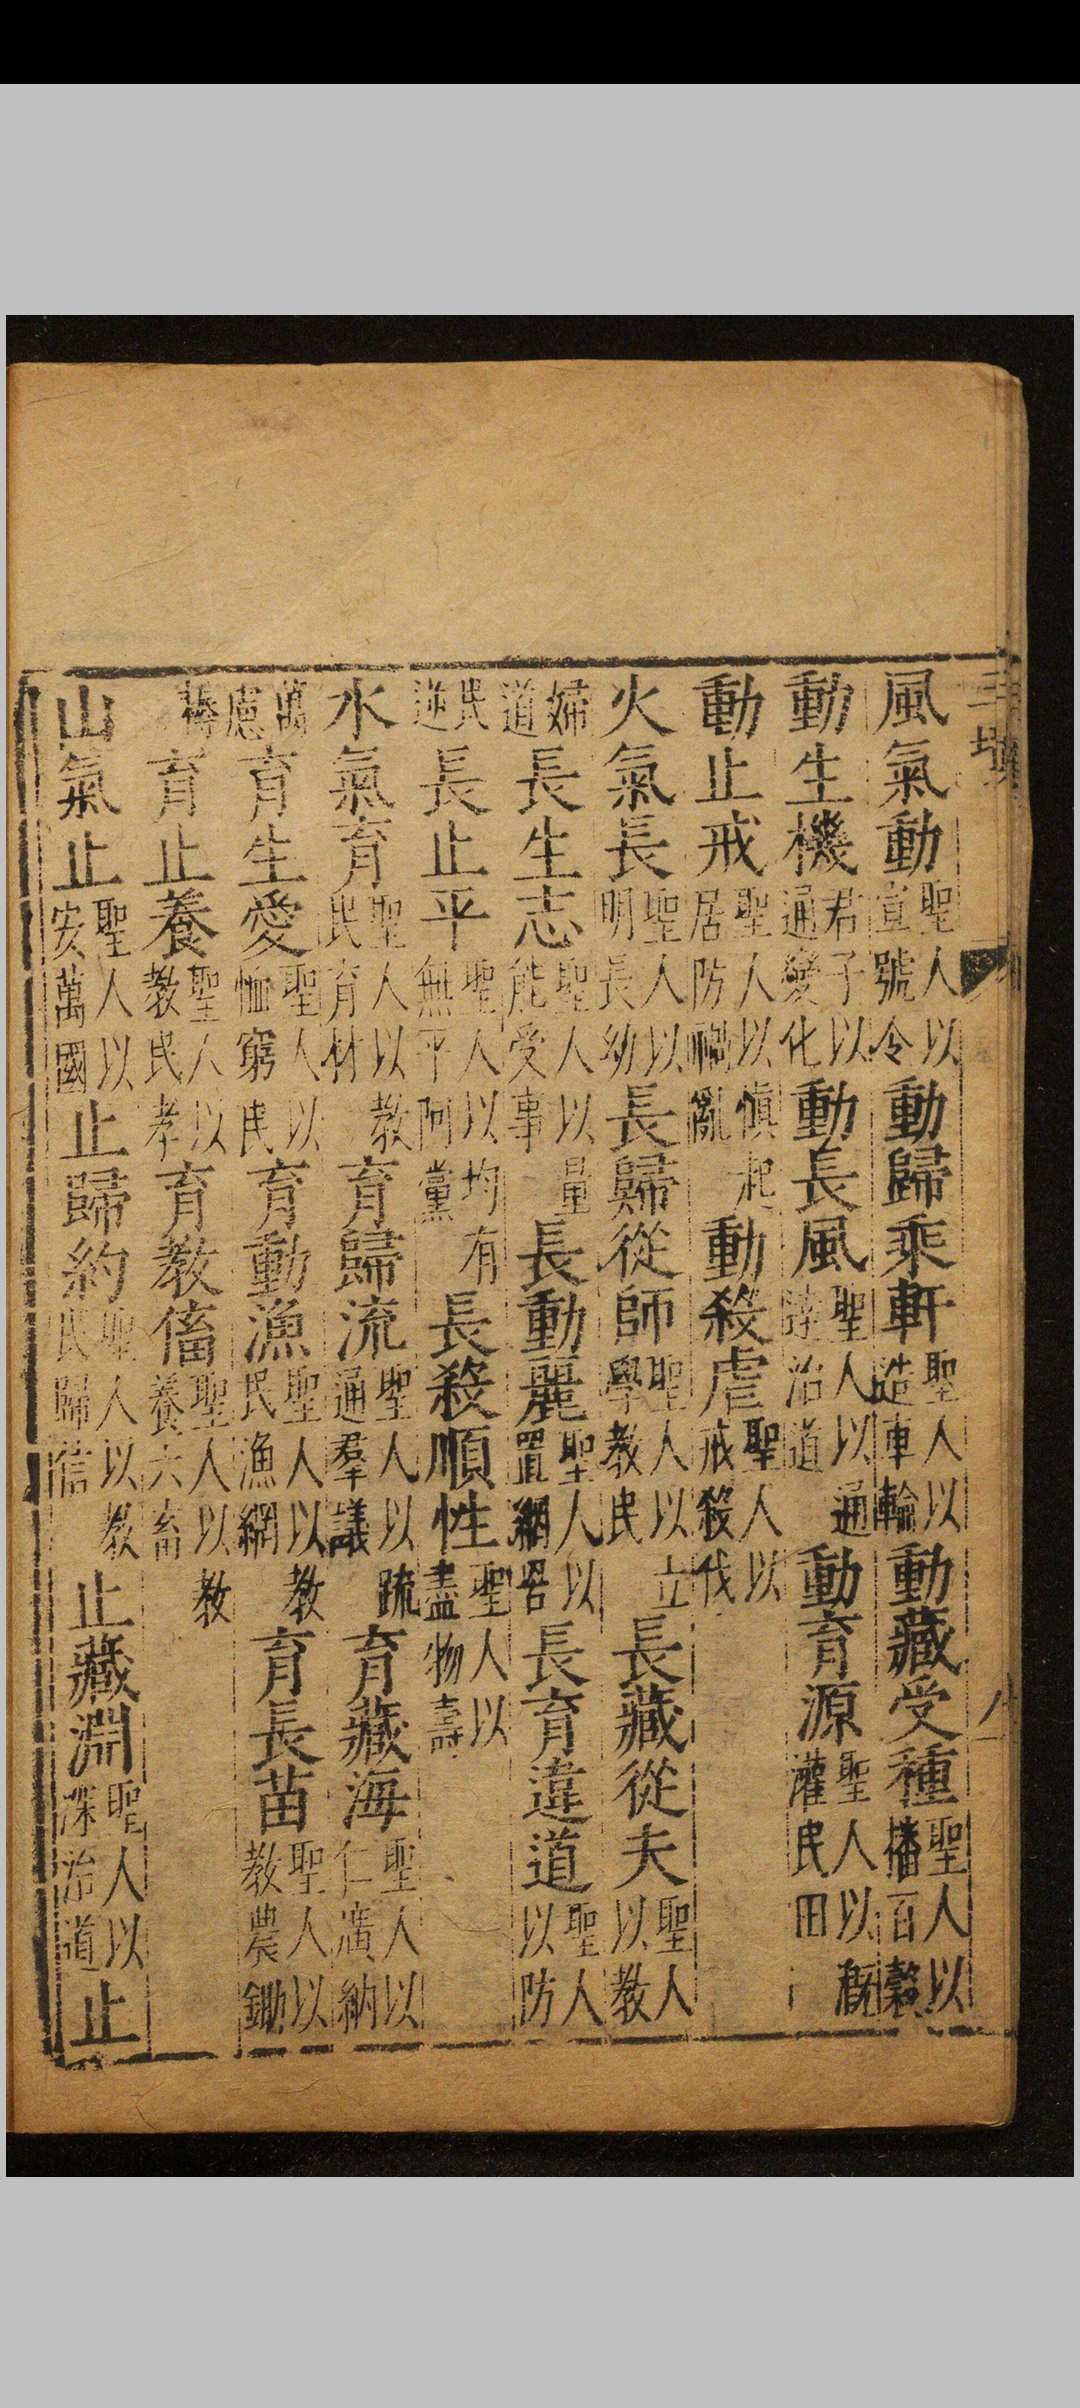 三墳
八
風氣動聖人以宣號令動歸乘軒聖人以造車輪動藏受種聖人以播百穀
動生機君子以通變化動長風聖人以通達治道動育源聖人以溉灌民田
動止戒聖人以慎起居防禍亂動殺虐聖人以戒殺伐
火氣長聖人以明長幼長歸從師聖人以立學教民長藏從夫聖人以教
婦道長生志聖人以量能受事長動麗聖人以置網罟長育違道聖人以防
民逆長止平聖人以均有無平阿黨長殺順性聖人以盡物壽
水氣育聖人以教民育材育歸流聖人以疏通羣議育藏海聖人以仁廣納
萬慮育生愛聖人以恤窮民育動漁聖人以教民漁網育長苗聖人以教農鋤
耨育止養聖人以教民孝育教傗聖人以教養六畜
山氣止聖人以安萬國止歸約聖人以教民歸信止藏淵聖人以深治道止